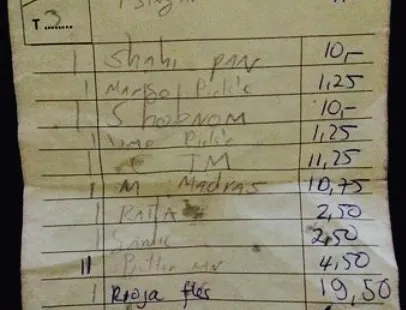 T.......3
1 Shahi pan 10,-
1 Mango Pickle 1,25
1 Shobnom 10,-
1 Pickle 1,25
1 TM 11,25
1 M Madras 10,75
1 RAITA 2,50
1 2,50
11 4,50
1 Rioja fles 19,50